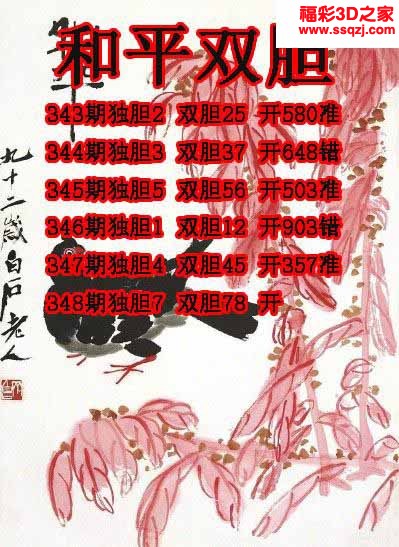 福彩3D之家
www.ssqzj.com
和平双胆
343期独胆2 双胆25 开580准
344期独胆3 双胆37 开648错
345期独胆5 双胆56 开503准
346期独胆1 双胆12 开903错
347期独胆4 双胆45 开357准
348期独胆7 双胆78 开
九十二岁白石老人